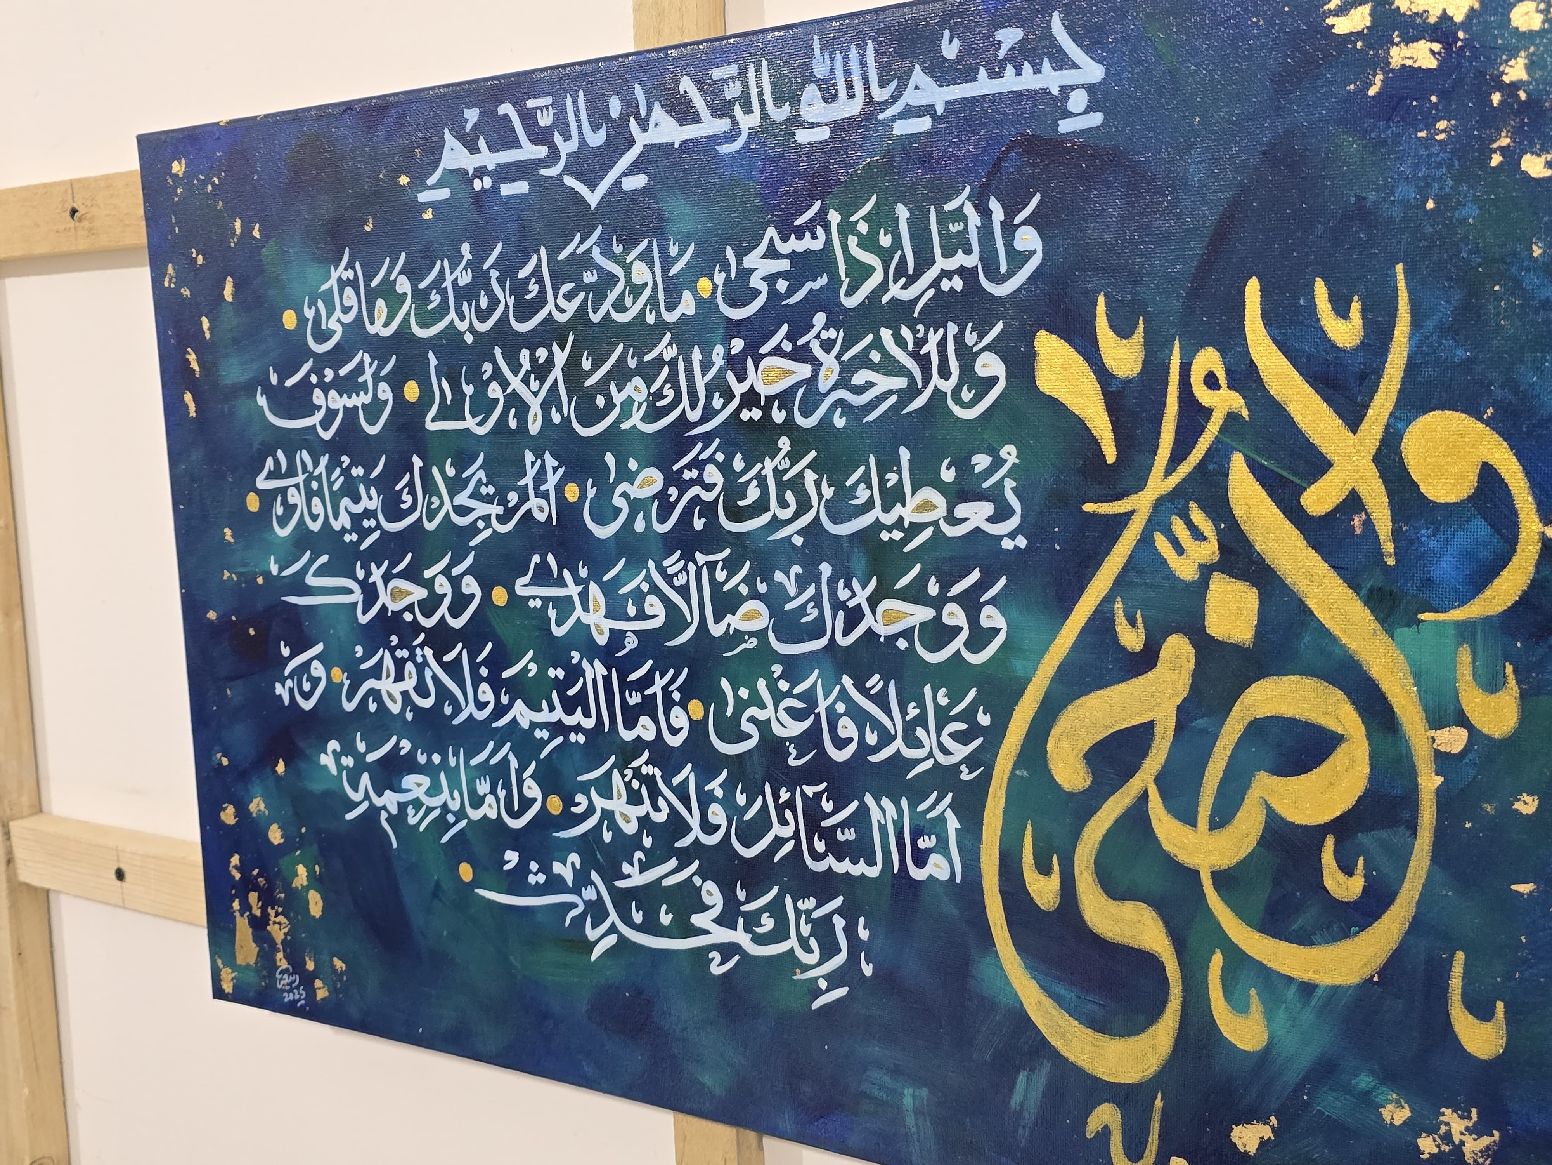 بِسْمِ اللهِ الرَّحْمٰنِ الرَّحِيْمِ
وَالضُّحٰى
وَالَّيْلِ اِذَا سَجٰى • مَا وَدَّعَكَ رَبُّكَ وَمَا قَلٰى •
وَلَلْاٰخِرَةُ خَيْرٌ لَّكَ مِنَ الْاُوْلٰى • وَلَسَوْفَ
يُعْطِيْكَ رَبُّكَ فَتَرْضٰى • اَلَمْ يَجِدْكَ يَتِيْمًا فَاٰوٰى •
وَوَجَدَكَ ضَآلًّا فَهَدٰى • وَوَجَدَكَ
عَآئِلًا فَاَغْنٰى • فَاَمَّا الْيَتِيْمَ فَلَا تَقْهَرْ • وَ
اَمَّا السَّآئِلَ فَلَا تَنْهَرْ • وَاَمَّا بِنِعْمَةِ
رَبِّكَ فَحَدِّثْ •
2025